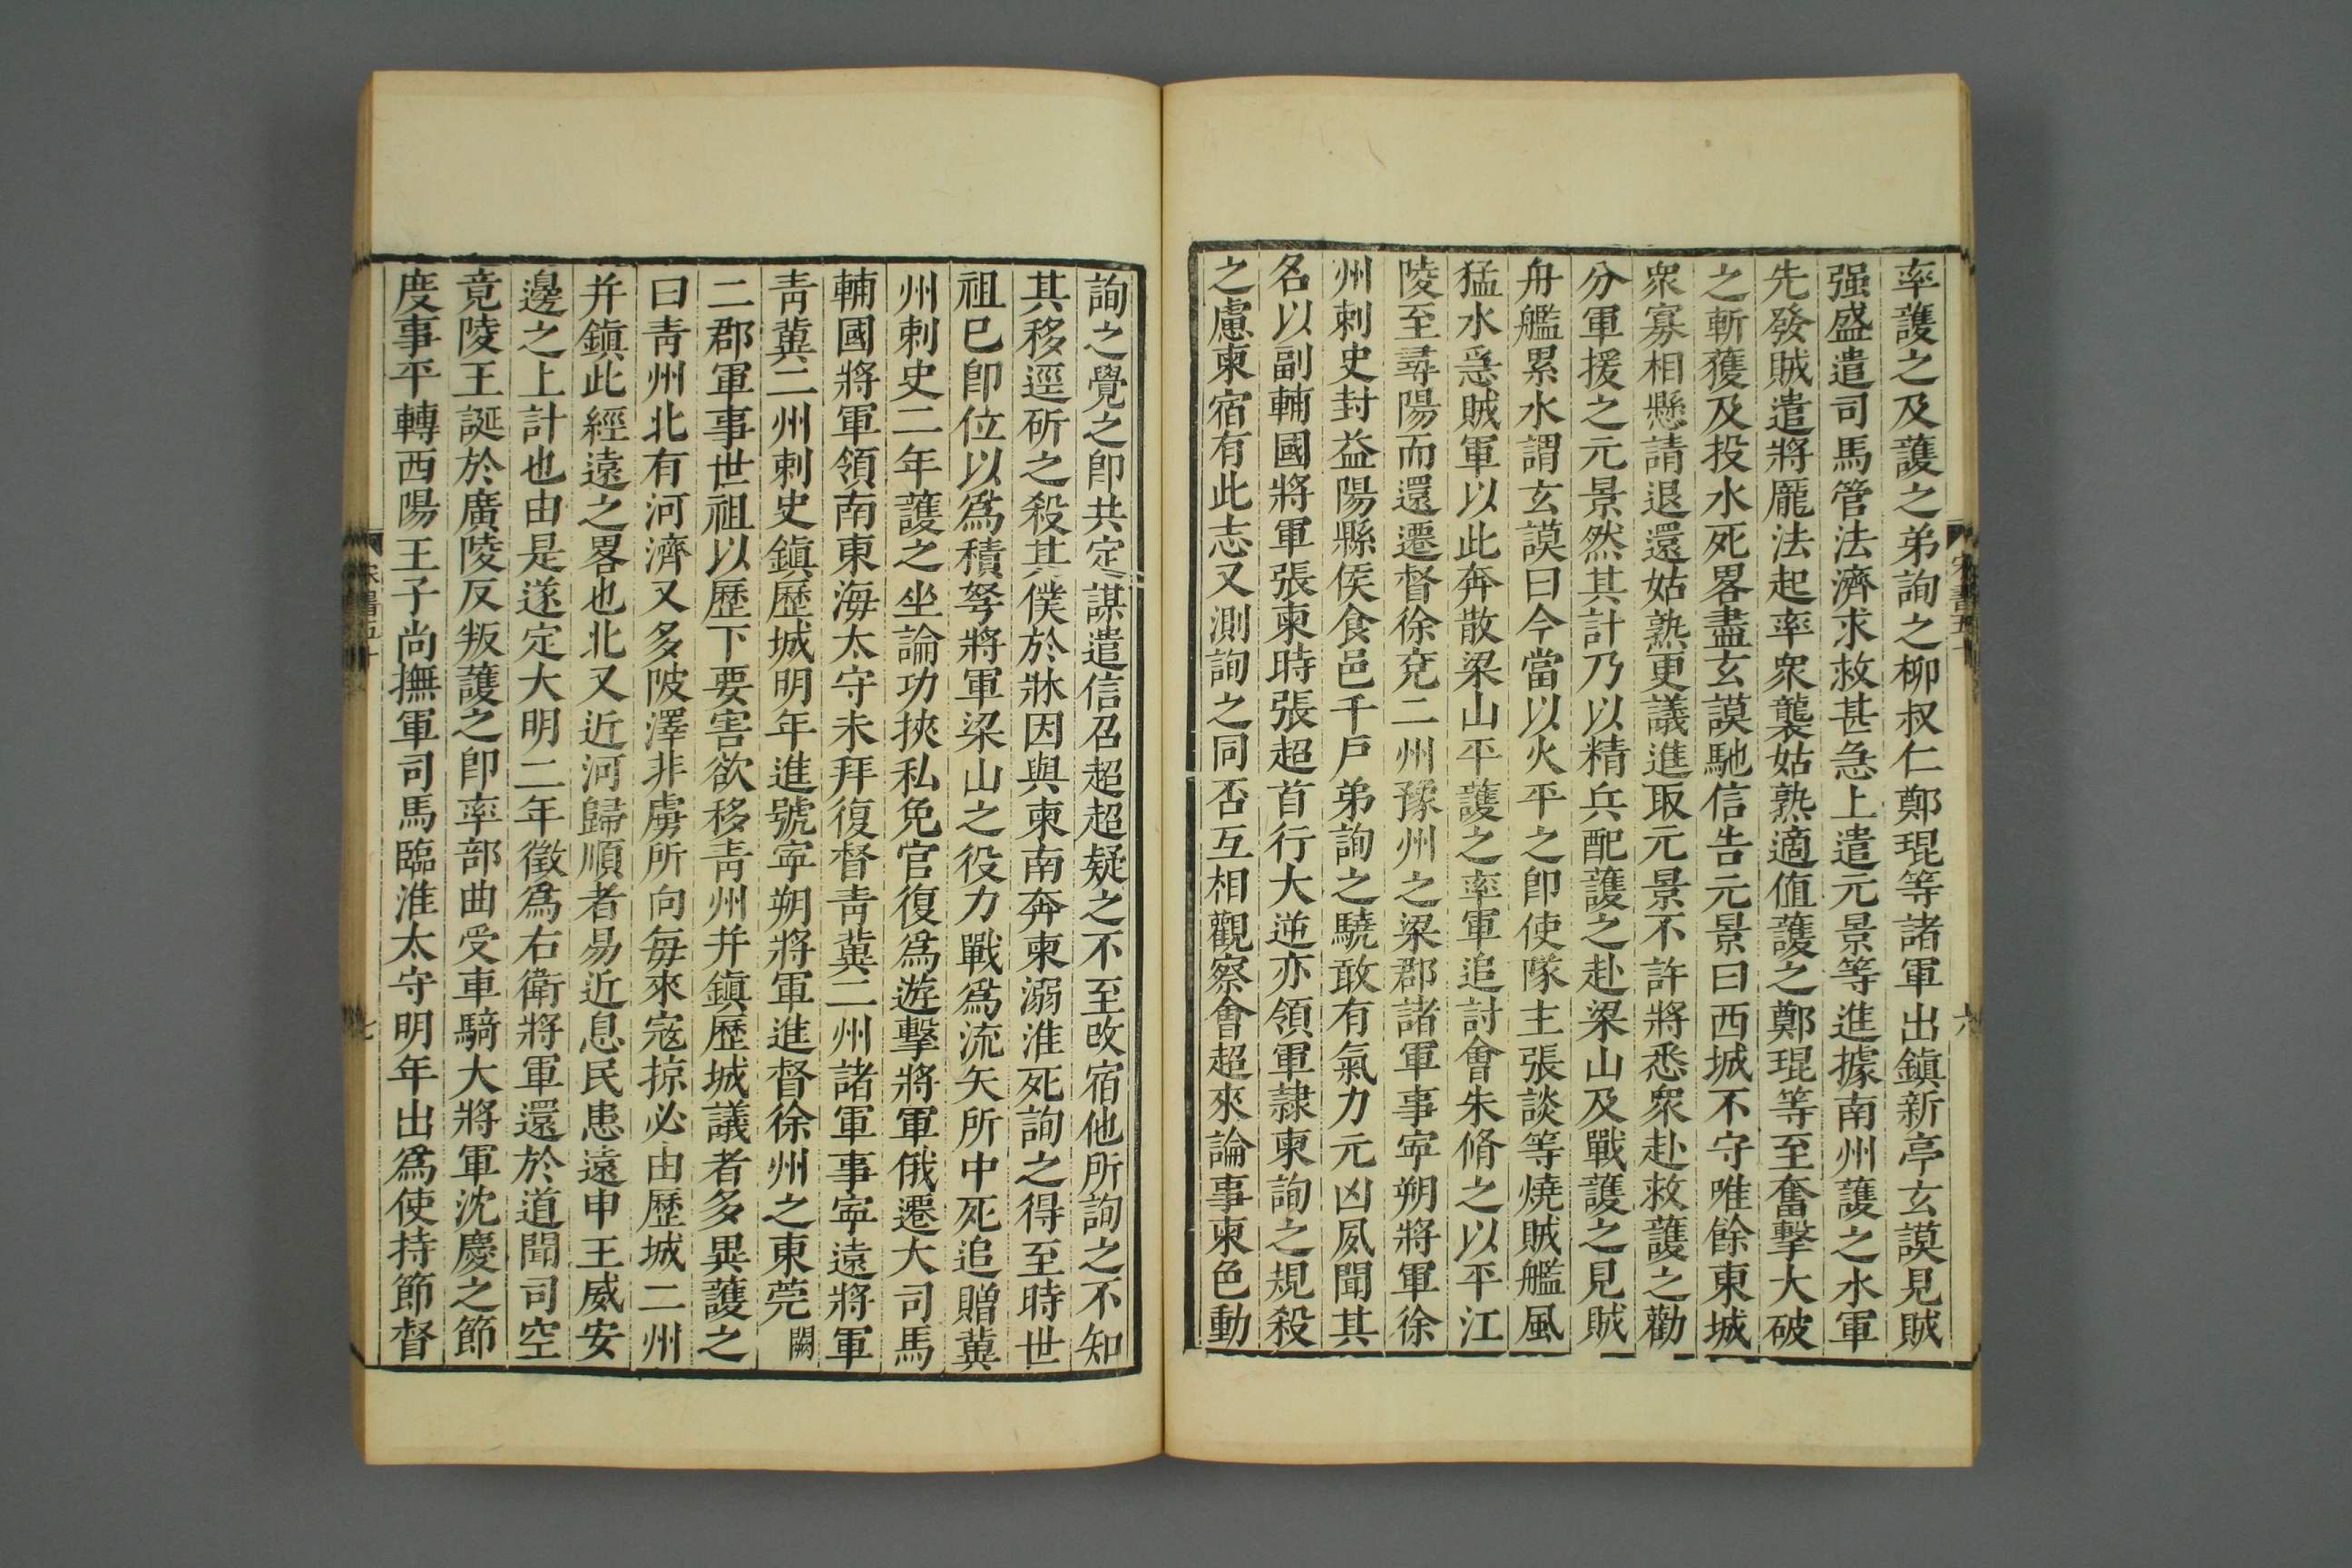 率護之及護之弟詢之柳叔仁鄭琨等諸軍出鎮新亭玄謨見賊
强盛遣司馬管法濟求救甚急上遣元景等進據南州護之水軍
先發賊遣將龎法起率衆襲姑熟適值護之鄭琨等至奮擊大破
之斬獲及投水死畧盡玄謨馳信告元景曰西城不守唯餘東城
衆寡相懸請退還姑熟更議進取元景不許將悉衆赴救護之勸
分軍援之元景然其計乃以精兵配護之赴梁山及戰護之見賊
舟艦累水謂玄謨曰今當以火平之卽使隊主張談等燒賊艦風
猛水急賊軍以此奔散梁山平護之率軍追討會朱脩之以平江
陵至尋陽而還遷督徐兗二州豫州之梁郡諸軍事寜朔將軍徐
州刺史封益陽縣侯食邑千戶弟詢之驍敢有氣力元凶夙聞其
名以副輔國將軍張柬時張超首行大逆亦領軍隷柬詢之規殺
之慮柬宿有此志又測詢之同否互相觀察會超來論事柬色動
詢之覺之卽共定謀遣信召超超疑之不至改宿他所詢之不知
其移逕斫之殺其僕於牀因與柬南奔柬溺淮死詢之得至時世
祖已卽位以爲積弩將軍梁山之役力戰爲流矢所中死追贈冀
州刺史二年護之坐論功挾私免官復爲遊擊將軍俄遷大司馬
輔國將軍領南東海太守未拜復督靑冀二州諸軍事寜遠將軍
靑冀二州刺史鎮歷城明年進號寜朔將軍進督徐州之東莞闕
二郡軍事世祖以歷下要害欲移靑州并鎮歷城議者多異護之
曰靑州北有河濟又多陂澤非虜所向每來寇掠必由歷城二州
并鎮此經遠之畧也北又近河歸順者易近息民患遠申王威安
邊之上計也由是遂定大明二年徵爲右衛將軍還於道聞司空
竟陵王誕於廣陵反叛護之卽率部曲受車騎大將軍沈慶之節
度事平轉西陽王子尚撫軍司馬臨淮太守明年出爲使持節督